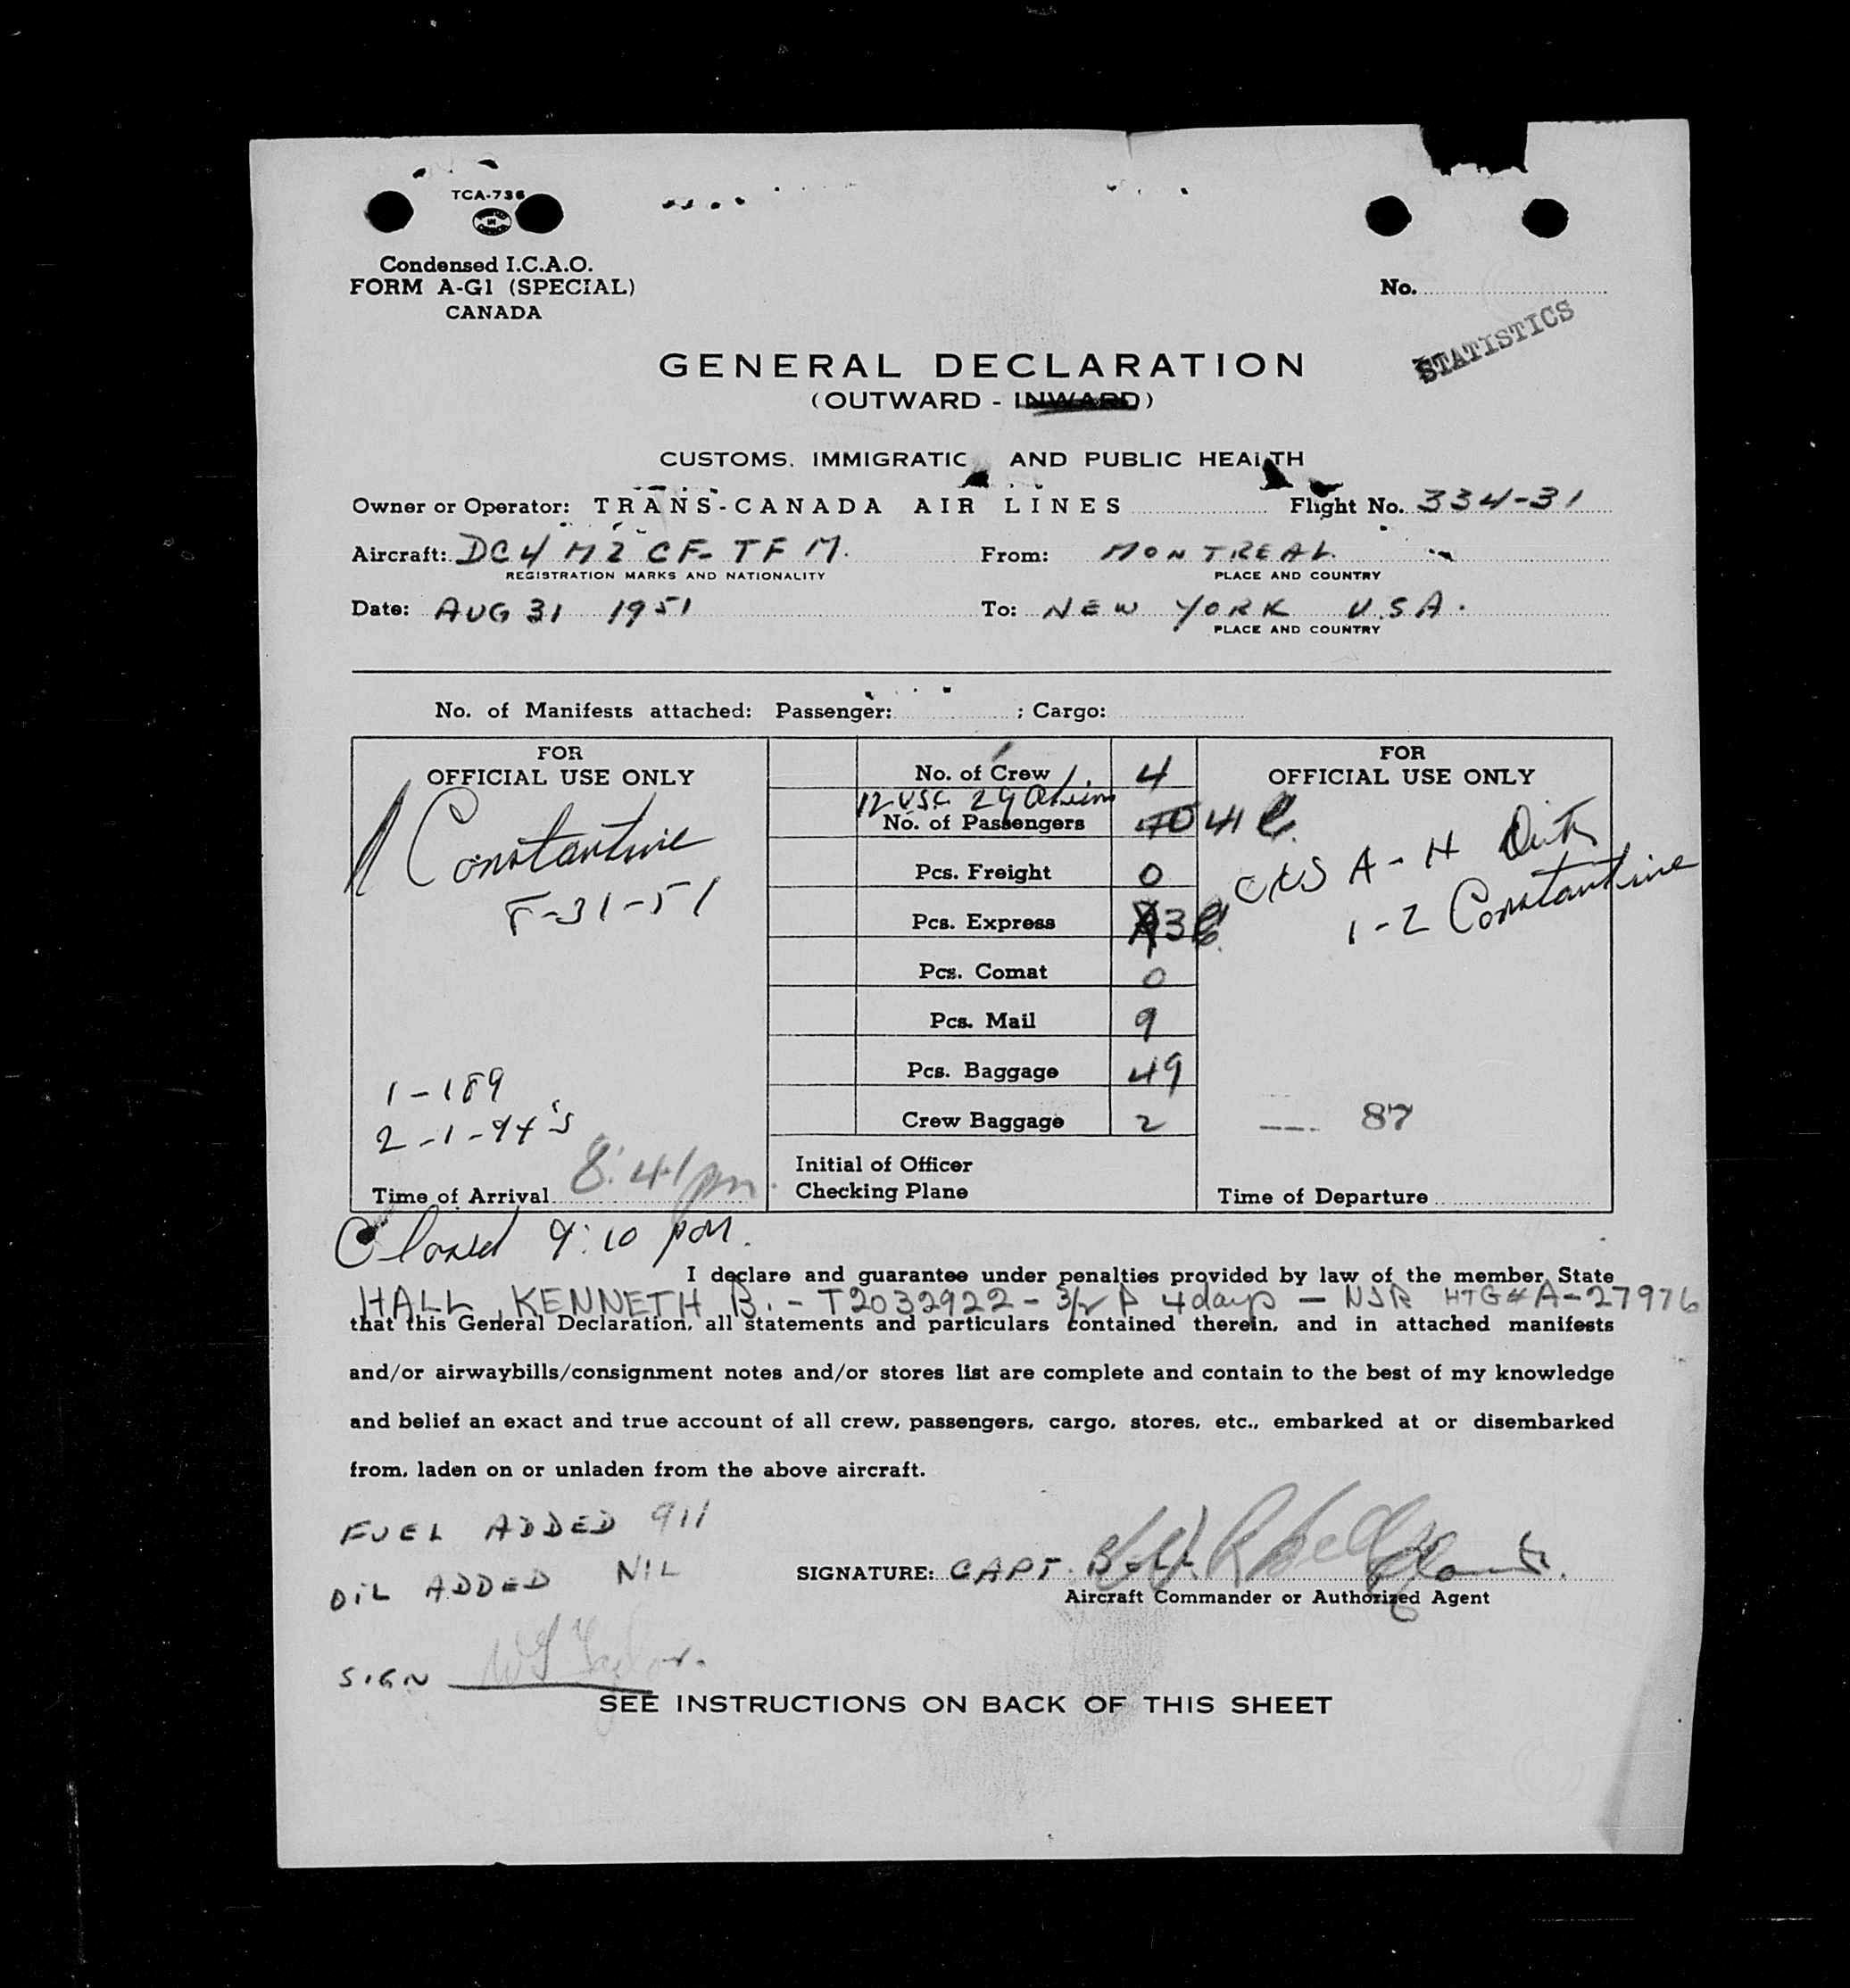 TCA-736
Condensed I.C.A.O.
FORM A-G1 (SPECIAL)
CANADA
No.
STATISTICS
GENERAL DECLARATION
(OUTWARD - INWARD)
CUSTOMS. IMMIGRATIO AND PUBLIC HEALTH
Owner or Operator: TRANS-CANADA AIR LINES Flight No. 334-31
Aircraft: DC4 M2 CF-TFM. From: MONTREAL
REGISTRATION MARKS AND NATIONALITY PLACE AND COUNTRY
Date: AUG 31 1951 To: NEW YORK U.S.A.
PLACE AND COUNTRY
No. of Manifests attached: Passenger: ; Cargo:
FOR
OFFICIAL USE ONLY
Constantine
8-31-51
1-189
2-1-94's
Time of Arrival 8:41 pm.
No. of Crew 4
12 USC 29 Aliens
No. of Passengers 40 41
Pcs. Freight 0
Pcs. Express 3
Pcs. Comat 0
Pcs. Mail 9
Pcs. Baggage 49
Crew Baggage 2
Initial of Officer
Checking Plane
FOR
OFFICIAL USE ONLY
A-H
1-Z Constantine
87
Time of Departure
Closed 9:10 pm.
I declare and guarantee under penalties provided by law of the member State
HALL, KENNETH B. - T2032922 - 4 days - NJR HTG# A-27976
that this General Declaration, all statements and particulars contained therein, and in attached manifests
and/or airwaybills/consignment notes and/or stores list are complete and contain to the best of my knowledge
and belief an exact and true account of all crew, passengers, cargo, stores, etc., embarked at or disembarked
from, laden on or unladen from the above aircraft.
FUEL ADDED 911
OIL ADDED NIL
SIGNATURE: CAPT.
Aircraft Commander or Authorized Agent
SIGN
SEE INSTRUCTIONS ON BACK OF THIS SHEET